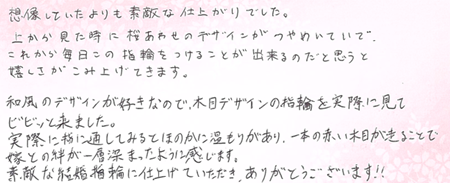 想像していたよりも素敵な仕上がりでした。
上から見た時に桜あわせのデザインがつやめいていて、
これから毎日この指輪をつけることが出来るのだと思うと
嬉しさがこみ上げてきます。
和風のデザインが好きなので、木目デザインの指輪を実際に見て
ビビッと来ました。
実際に指に通してみるとほのかに温もりがあり、一本の赤い木目が走ることで
嫁との絆が一層深まったように感じます。
素敵な結婚指輪に仕上げていただき、ありがとうございます!!